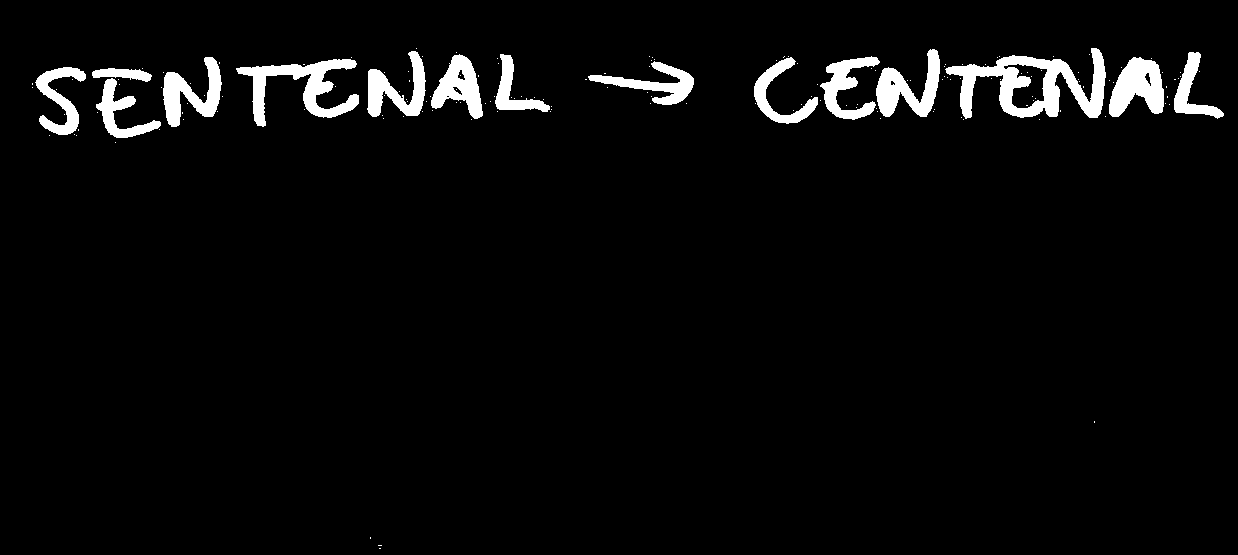 SENTENAL → CENTENAL